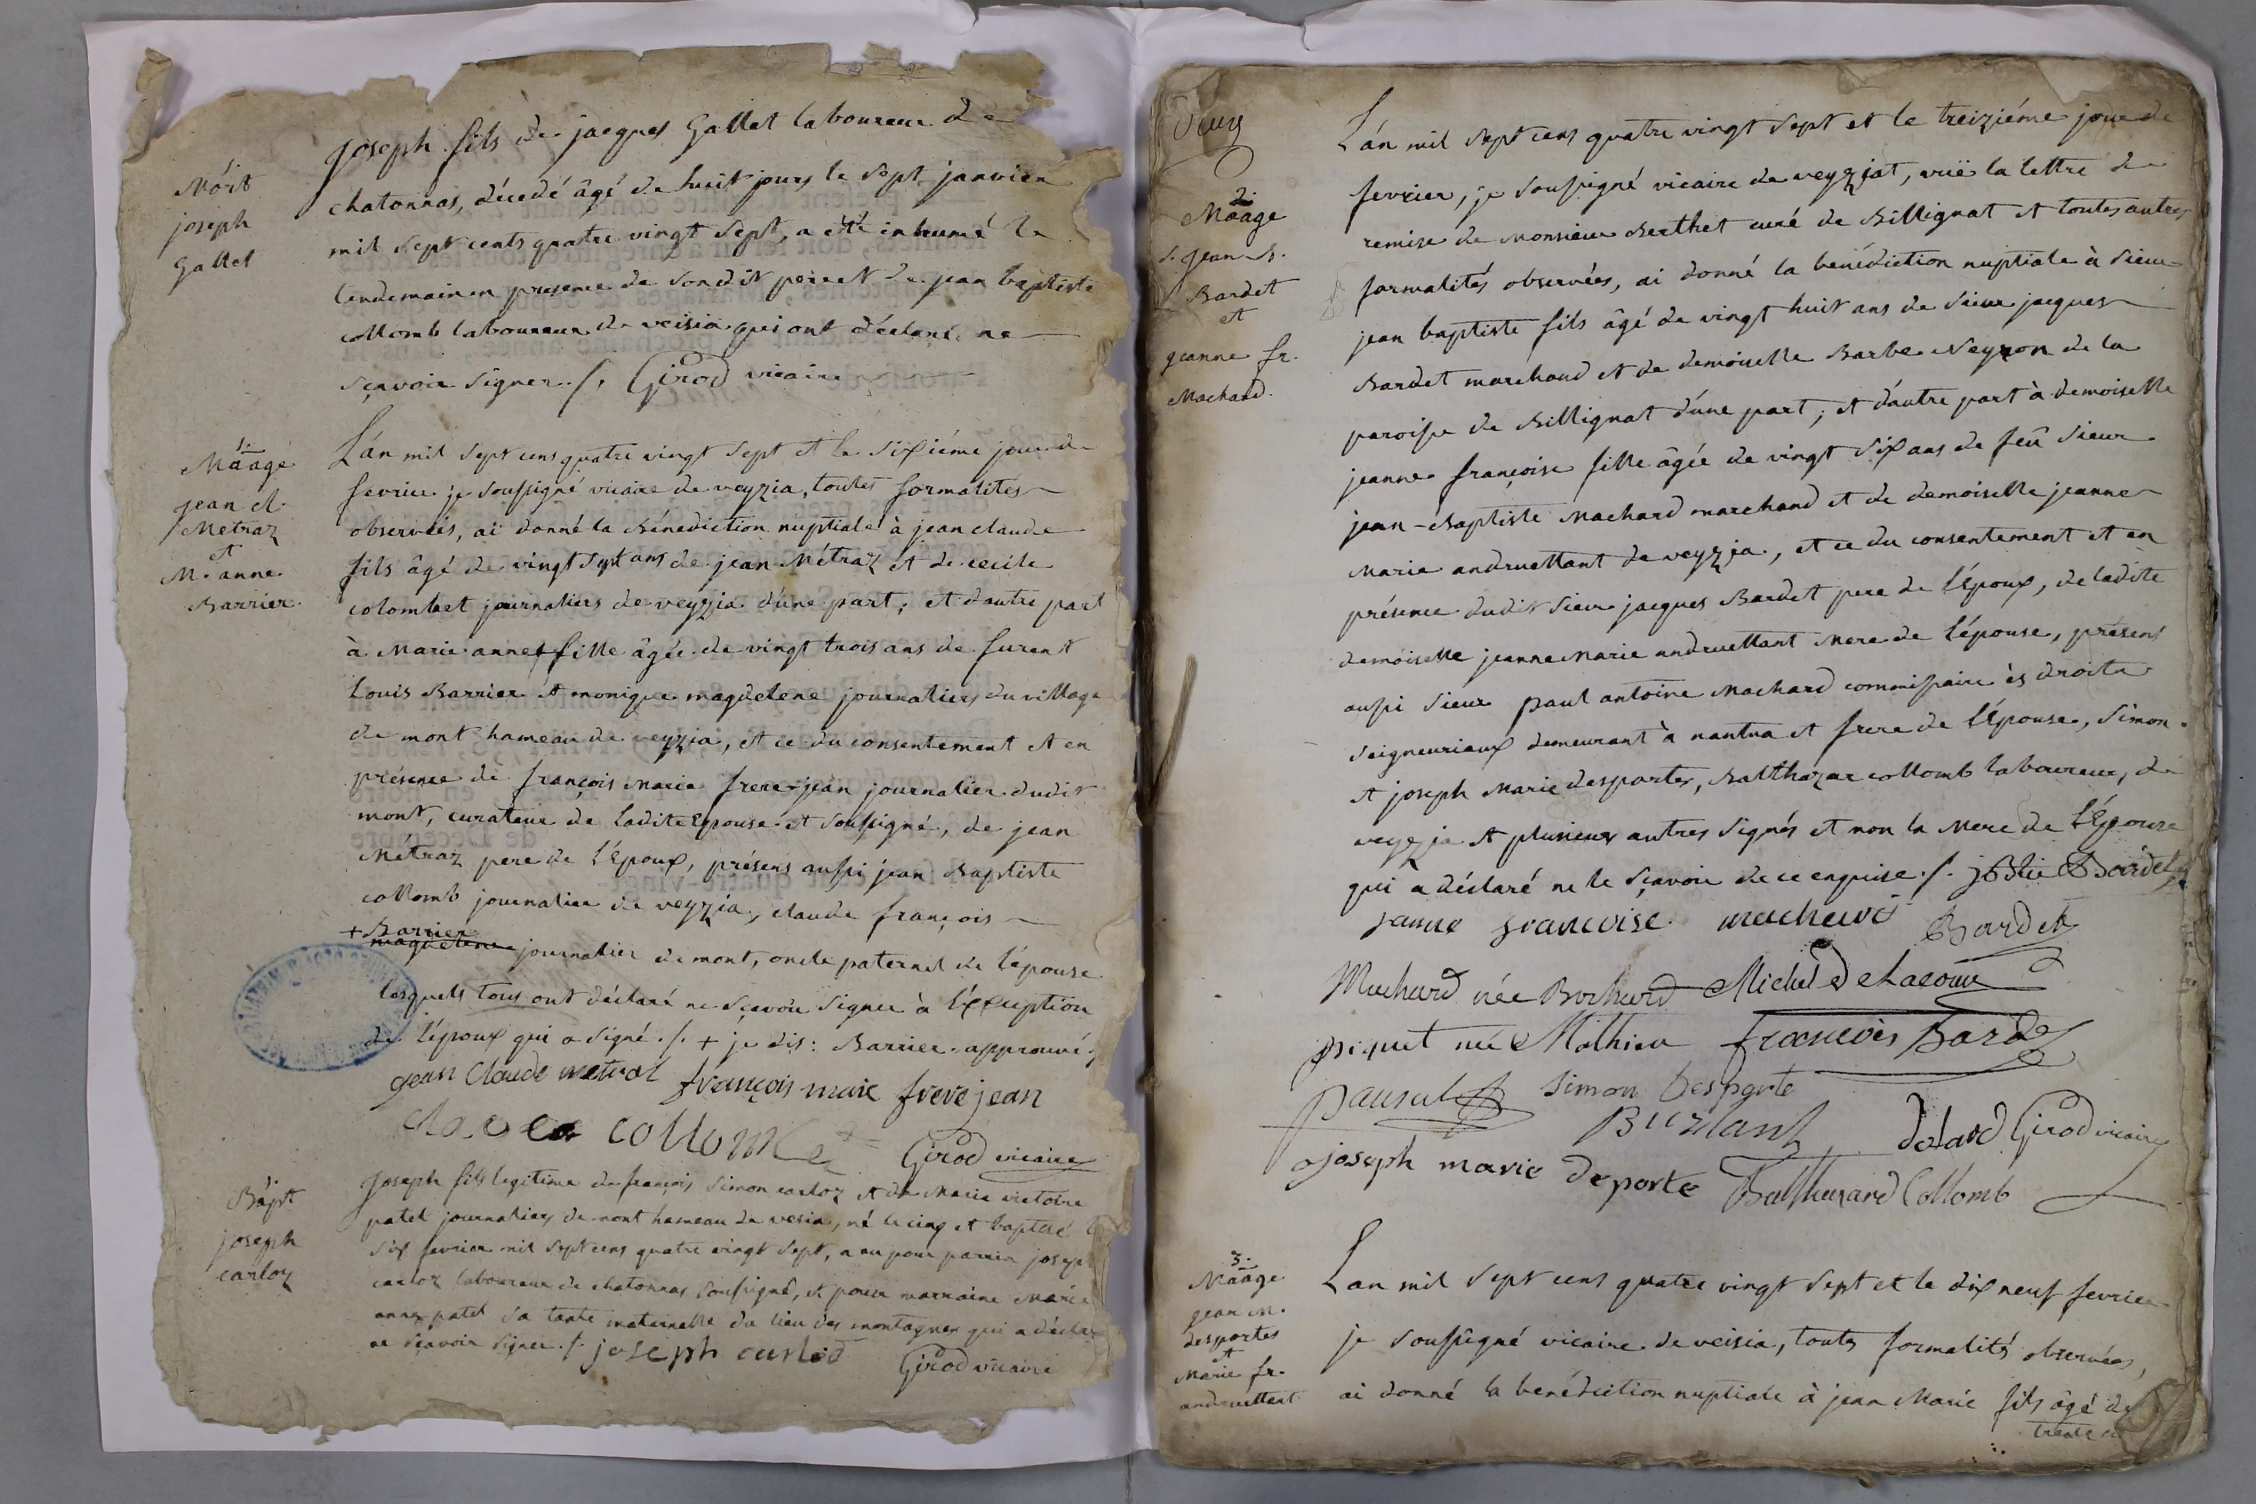 Mort
joseph
Gallet
joseph fils de jacques Gallet laboureur de
chatonnas, décedé âgé de huit jours le sept janvier
mil sept cents quatre vingt sept, a été inhumé le
lendemain en presence de sondit pere et de jean baptiste
collomb laboureur de veisia qui ont déclaré ne
sçavoir signer ./. Girod vicaire
1.
Maage
jean cl.
Metraz
et
M. anne
Barrier
L'an mil sept cens quatre vingt sept et le sixiéme jour de
fevrier je soussigné vicaire de veyzia, toutes formalites
observées, ai donné la Bénediction nuptiale à jean claude
fils âgé de vingt sept ans de jean Métraz et de cecile
colombet journaliers de veyzia d'une part; et d'autre part
à Marie anne fille âgée de vingt trois ans de furent
Louis Barrier et monique magdelene journaliers du village
de mont hameau de veyzia, et ce du consentement et en
présence de françois Marie frere-jean journalier dudit
mont, curateur de ladite Epouse et soussigné, de jean
Métraz pere de l'Epoux, présens aussi jean Baptiste
collomb journalier de veyzia, claude françois
+ Barrier
magdelene journalier de mont, oncle paternel de l'épouse
lesquels tous ont déclaré ne sçavoir signer à l'éxception
de l'époux qui a signé ./. + je dis: Barrier approuvé
jean Claude metral françois marie frere jean
collomb Girod vicaire
Bapt
joseph
carloz
Joseph fils legitime de françois Simon carloz et de Marie victoire
patel journaliers de mont hameau de vesia, né le cinq et baptisé le
six fevrier mil sept cens quatre vingt sept, a eu pour parrin joseph
carloz laboureur de chatonnas soussigné, et pour marraine Marie
anne patel sa tante maternelle du lieu des montagnes qui a déclaré
ne sçavoir signer ./. joseph carlod
Girod vicaire
Deux
2.
Maage
s. jean B.
Bardet
et
jeanne fr.
Machard.
L'an mil sept cens quatre vingt sept et le treiziéme jour de
fevrier, je soussigné vicaire de veyziat, vuë la lettre de
remise de Monsieur Berthet curé de Billignat et toutes autres
formalités observées, ai donné la benédiction nuptiale à sieur
jean baptiste fils âgé de vingt huit ans de sieur jacques
Bardet marchand et de demoiselle Barbe Neyron de la
paroisse de Billignat d'une part, et d'autre part à demoiselle
jeanne françoise fille âgée de vingt six ans de feû sieur
jean-Baptiste Machard marchand et de demoiselle jeanne
Marie andruettant de veyzia, et ce du consentement et en
présence dudit sieur jacques Bardet pere de l'époux, de ladite
demoiselle jeanne Marie andruettant Mere de l'épouse, présens
aussi sieur paul antoine Machard commissaire ès droits
seigneuriaux demeurant à nantua et frere de l'épouse, Simon
et joseph Marie desportes, Balthazar collomb laboureur, de
veyzia et plusieurs autres signés et non la Mere de l'Epouse
qui a déclaré ne le sçavoir de ce enquise ./. jBtte Bardet
janne francoise machard Bardet
Machard née Bochard Michel Delacour
piquet née Mathieu françois Bardet
simon Desporte
Girod vicaire
joseph marie deporte Balthazard Collomb
3.
Maage
jean M.
desportes
et
Marie fr.
andruettant
L'an mil sept cens quatre vingt sept et le dix neuf fevrier
je soussigné vicaire de veisia, toutes formalités observées,
ai donné la benédiction nuptiale à jean Marie fils âgé de
trente